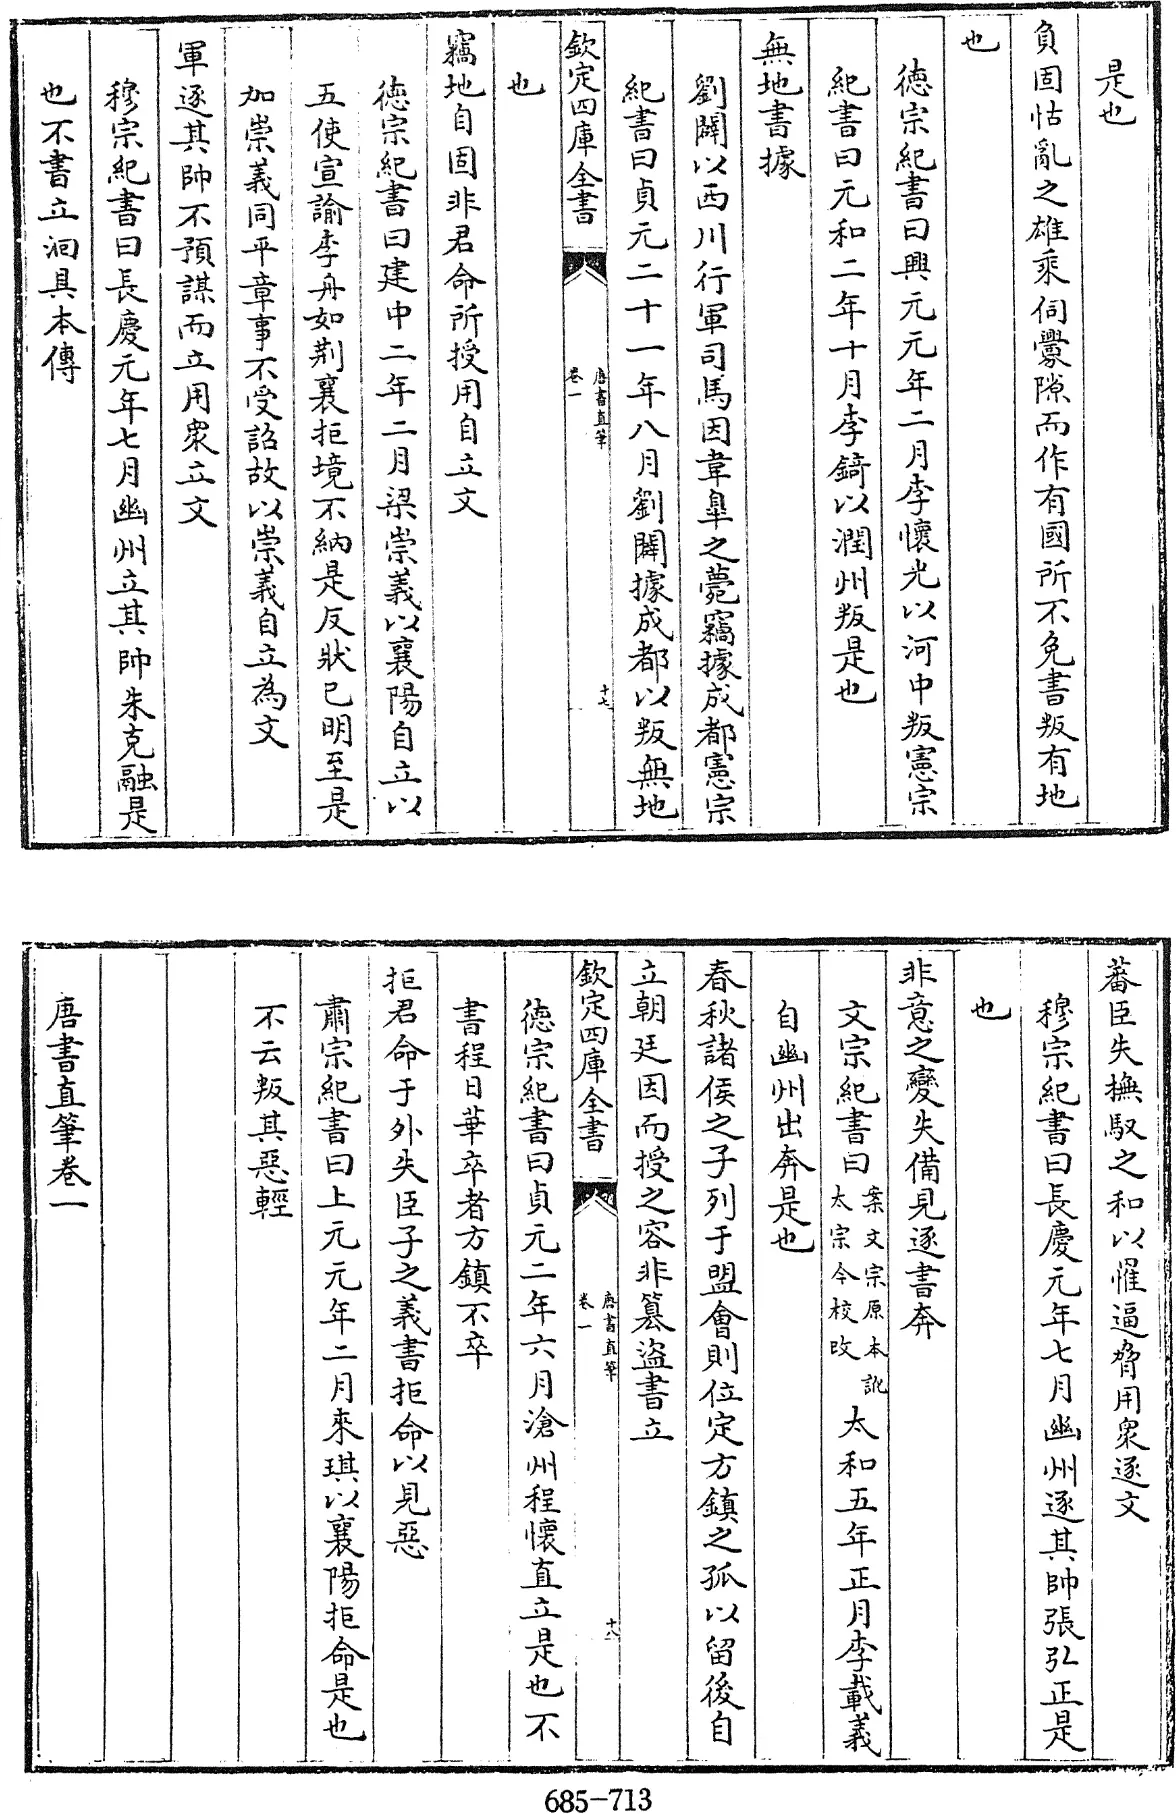 是也
負固怙亂之雄乘伺釁隙而作有國所不免書叛有地
也
德宗紀書曰興元元年二月李懷光以河中叛憲宗
紀書曰元和二年十月李錡以潤州叛是也
無地書據
劉闢以西川行軍司馬因韋臯之薨竊據成都憲宗
紀書曰貞元二十一年八月劉闢據成都以叛無地
欽定四庫全書
唐書直筆
卷一
十七
也
竊地自固非君命所授用自立文
德宗紀書曰建中二年二月梁崇義以襄陽自立以
五使宣諭李舟如荆襄拒境不納是反狀已明至是
加崇義同平章事不受詔故以崇義自立為文
軍逐其帥不預謀而立用衆立文
穆宗紀書曰長慶元年七月幽州立其帥朱克融是
也不書立洄具本傳
蕃臣失撫馭之和以惟逼脅用衆逐文
穆宗紀書曰長慶元年七月幽州逐其帥張弘正是
也
非意之變失備見逐書奔
文宗紀書曰案文宗原本訛太宗今校改太和五年正月李載義
自幽州出奔是也
春秋諸侯之子列于盟會則位定方鎮之孤以留後自
立朝廷因而授之容非篡盜書立
欽定四庫全書
唐書直筆
卷一
十八
德宗紀書曰貞元二年六月滄州程懷直立是也不
書程日華卒者方鎮不卒
拒君命于外失臣子之義書拒命以見惡
肅宗紀書曰上元元年二月來琪以襄陽拒命是也
不云叛其惡輕
唐書直筆卷一
685-713